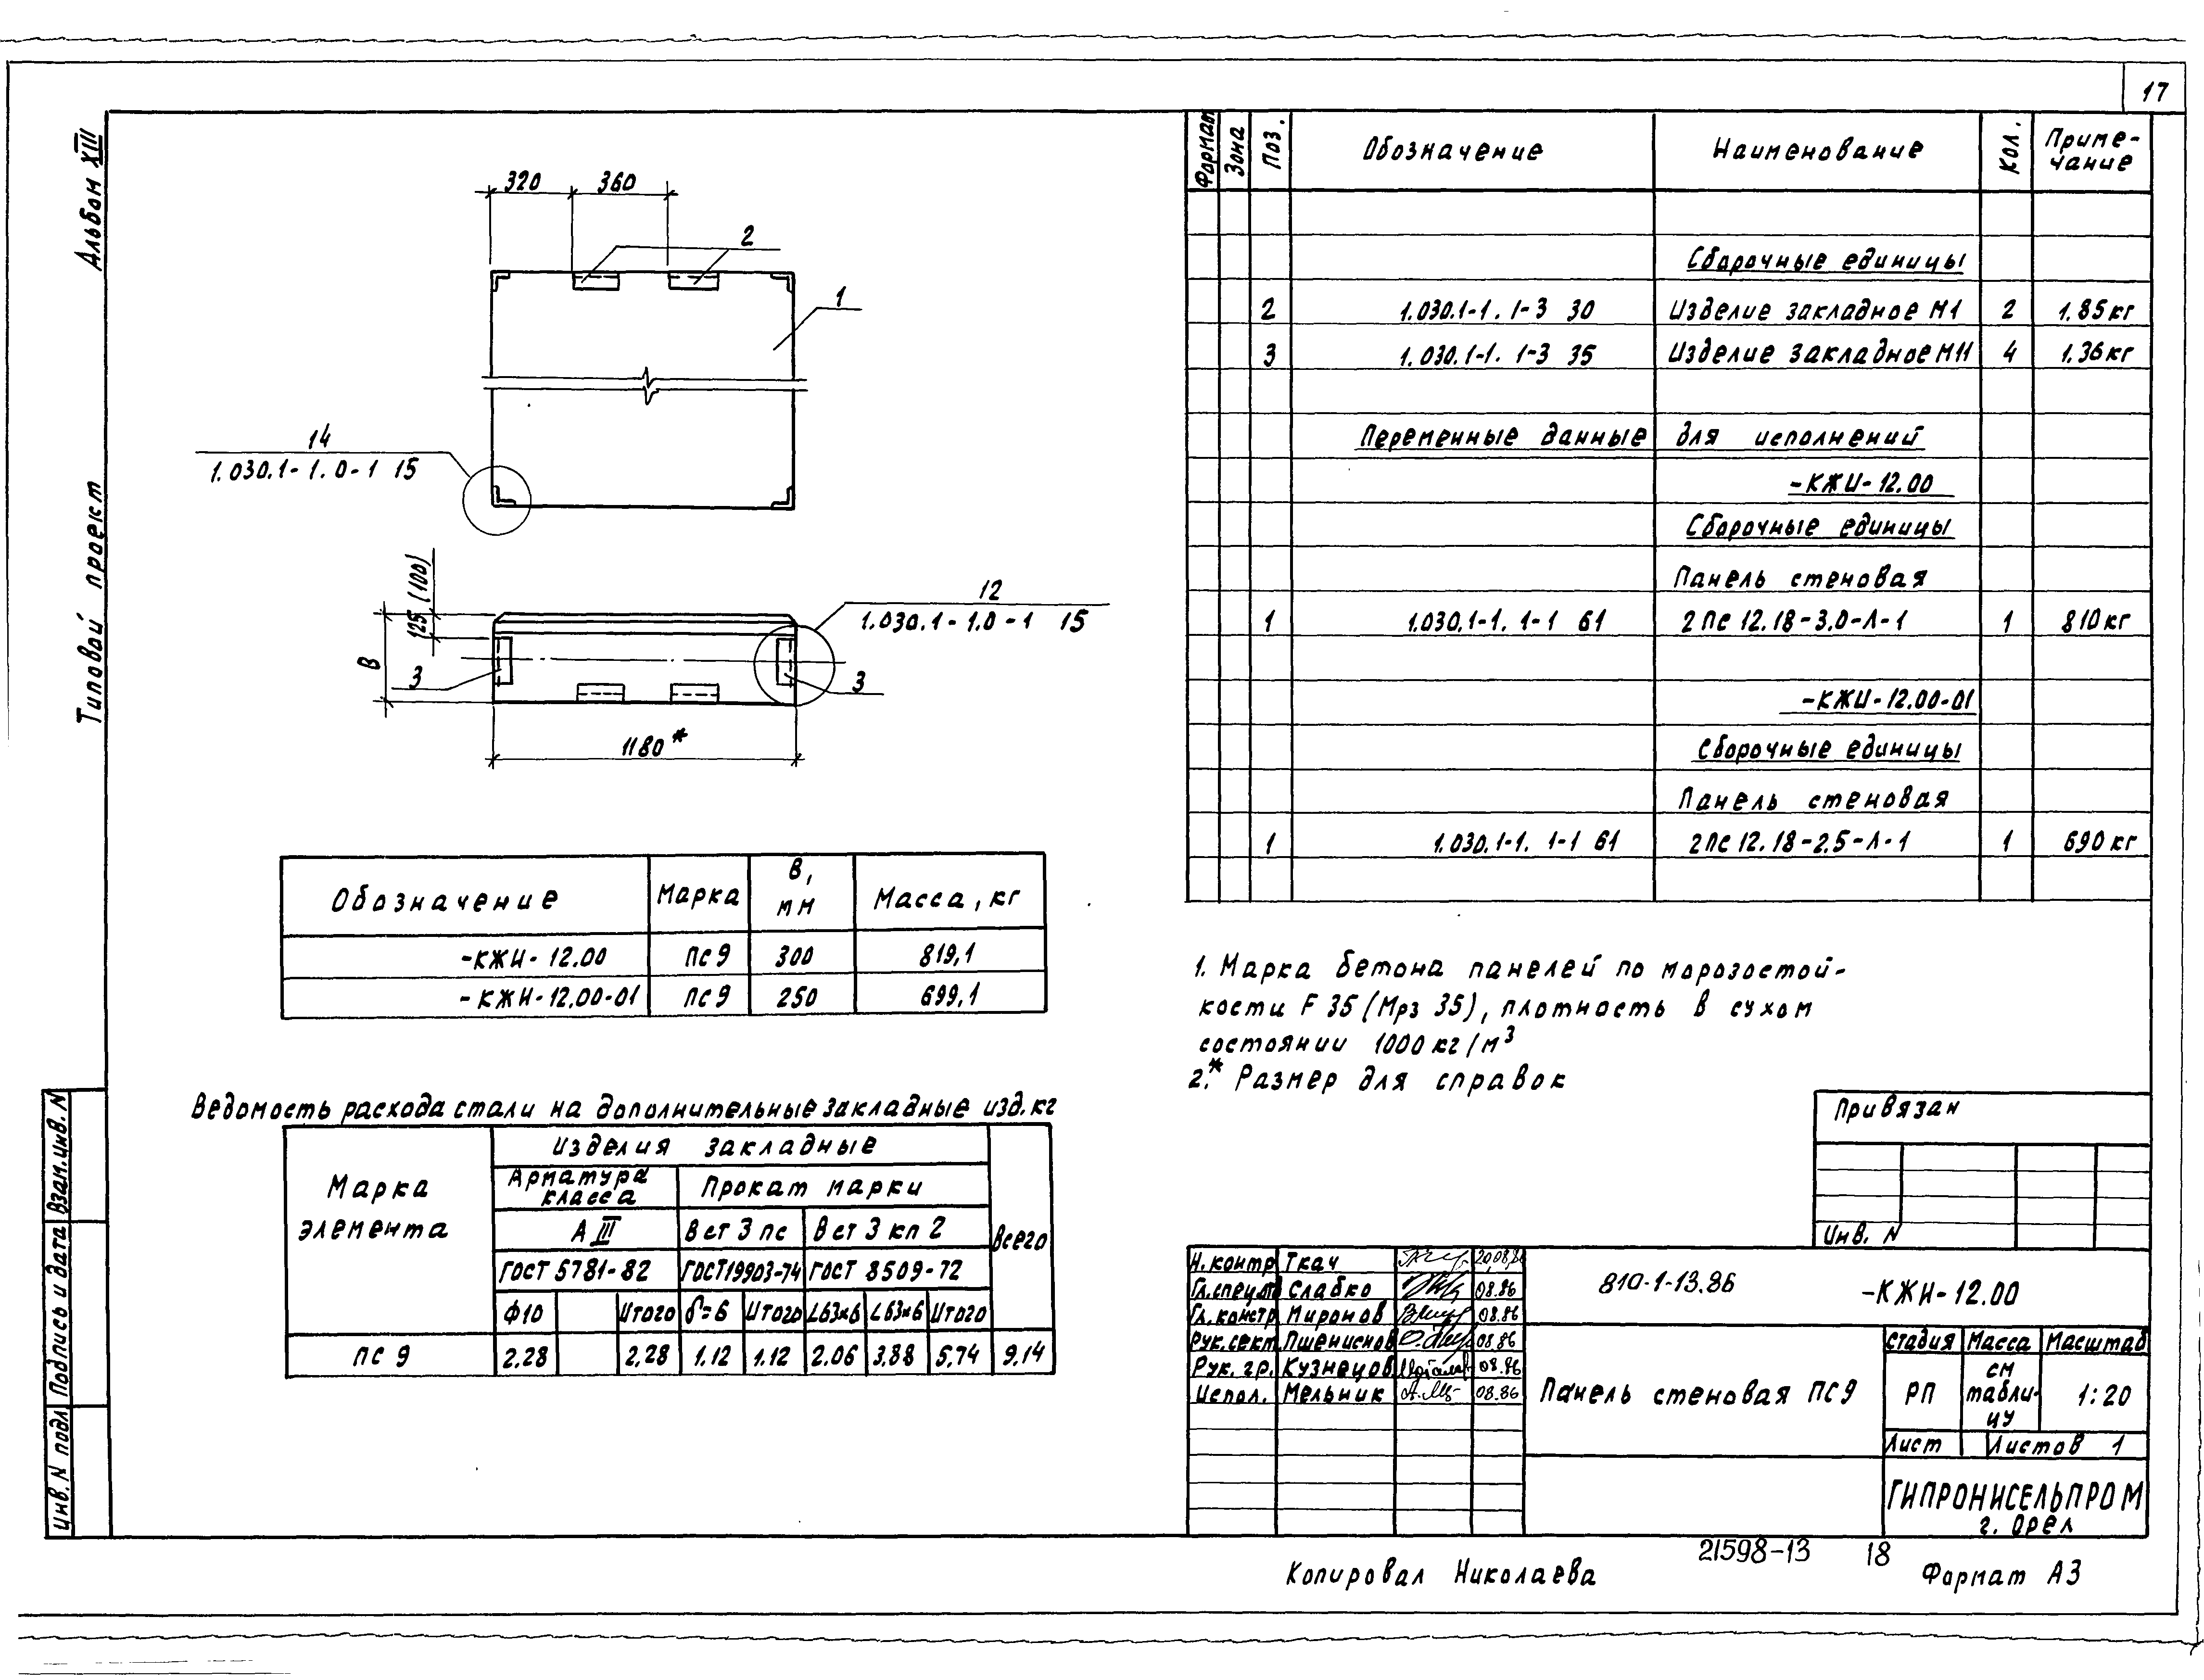 17
Альбом XIII
Типовой проект
320 360
2
1
14
1.030.1-1.0-1 15
125 (100)
В
12
1.030.1-1.0-1 15
3
3
1180*
Обозначение Марка В, мм Масса, кг
-КЖИ-12.00 ПС 9 300 819,1
-КЖИ-12.00-01 ПС 9 250 699,1
Ведомость расхода стали на дополнительные закладные изд. кг
Марка элемента
Изделия закладные
Всего
Арматура класса
Прокат марки
А III
Вст 3 пс
Вст 3 кп 2
ГОСТ 5781-82
ГОСТ 19903-74
ГОСТ 8509-72
Ф10 Итого δ=6 Итого L63×6 L63×6 Итого
ПС 9 2,28 2,28 1,12 1,12 2,06 3,88 5,74 9,14
Формат Зона Поз. Обозначение Наименование Кол. Приме-
чание
Сборочные единицы
2 1.030.1-1. 1-3 30 Изделие закладное М1 2 1.85 кг
3 1.030.1-1. 1-3 35 Изделие закладное М11 4 1.36 кг
Переменные данные для исполнений
-КЖИ-12.00
Сборочные единицы
Панель стеновая
1 1.030.1-1. 1-1 61 2ПС 12.18-3.0-Л-1 1 810 кг
-КЖИ-12.00-01
Сборочные единицы
Панель стеновая
1 1.030.1-1. 1-1 61 2ПС 12.18-2.5-Л-1 1 690 кг
1. Марка бетона панелей по морозостой-
кости F 35 (Мрз 35), плотность в сухом
состоянии 1000 кг/м³
2.* Размер для справок
Привязан
Инв. N
Н.контр Ткач 20.08.86
Гл.спец. Слабко 08.86
Гл.констр Миронов 08.86
Рук.сект Пшениснов 08.86
Рук. гр. Кузнецов 08.86
Испол. Мельник 08.86
810-1-13.86 -КЖИ-12.00
Панель стеновая ПС 9
Стадия Масса Масштаб
РП
см
табли-
цу
1:20
Лист Листов 1
ГИПРОНИСЕЛЬПРОМ
г. Орел
Инв. N подл. Подпись и дата Взам.инв. N
21598-13 18
Копировал Николаева Формат А3